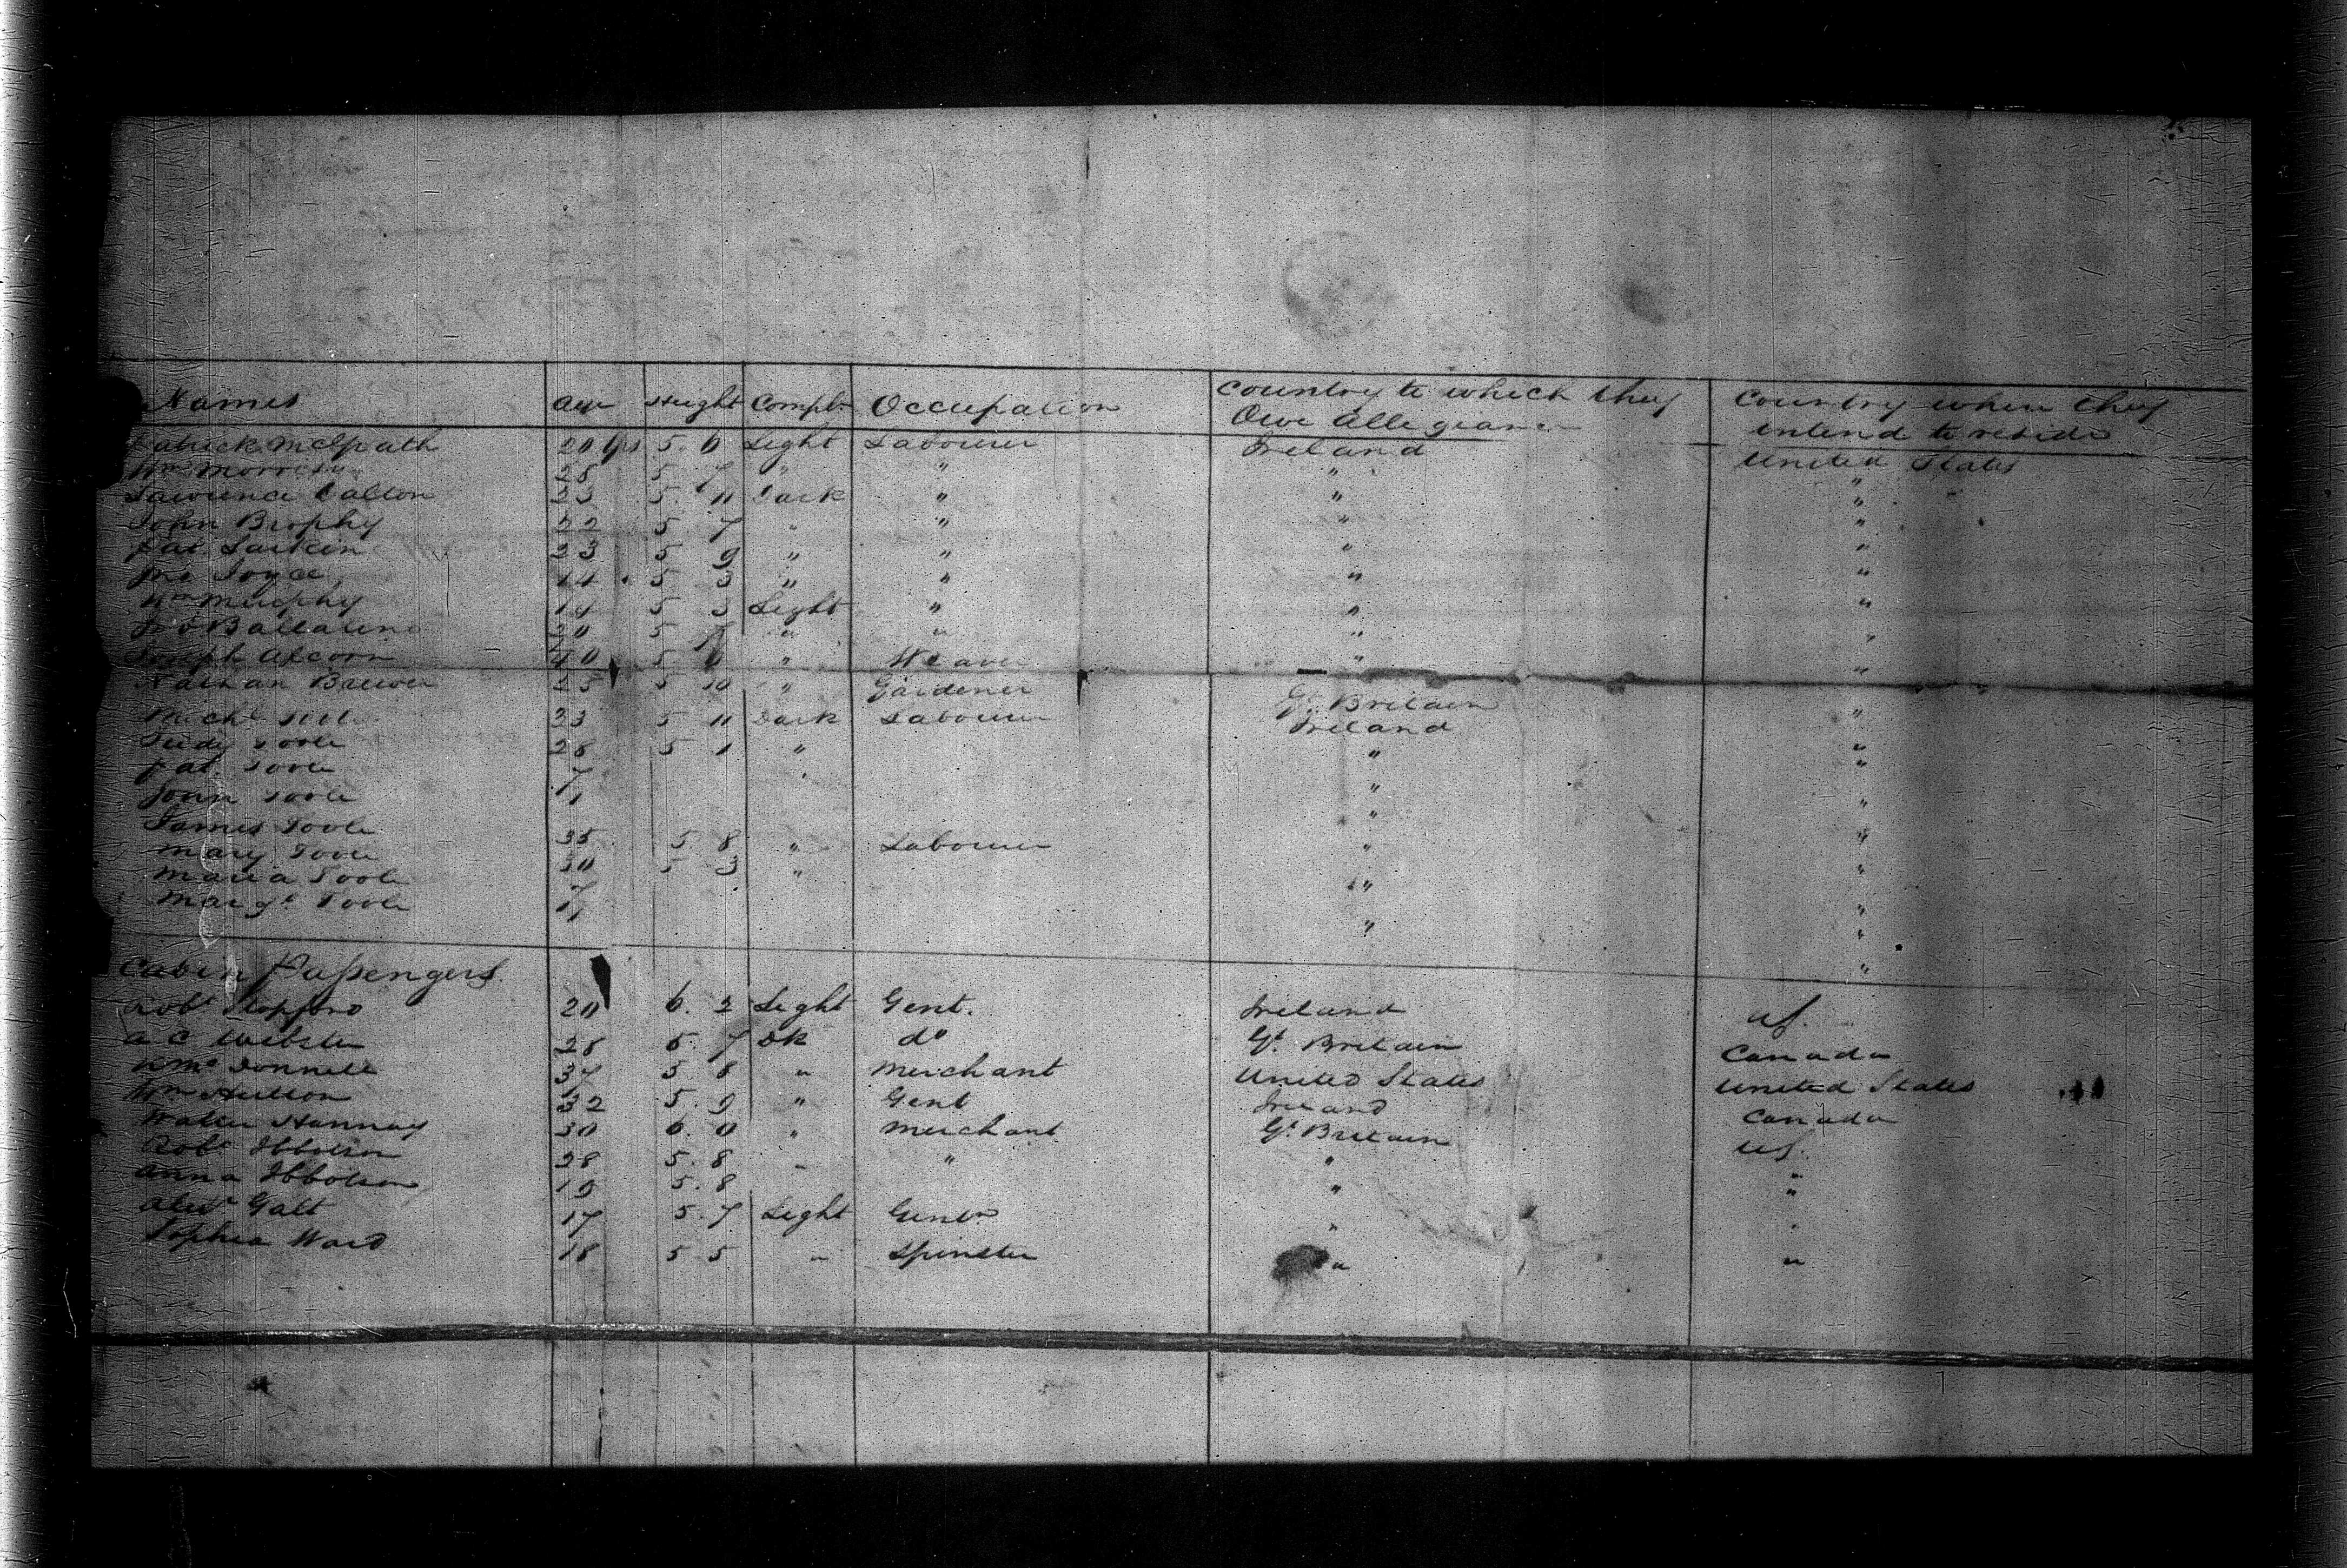 Names Age Height Compln Occupation Country to which they Owe Allegiance Country where they intend to reside
Patrick McGrath 20 yrs 5. 6 Light Labourer Ireland United States
Wm Morrissy 28 5 7 " " " "
Lawrence Dalton 5. 11 Dark " " "
John Brophy 22 5 7 " " " "
Pat Larkin 23 5 9 " " " "
Joyce 14 5 3 " " " "
Wm Murphy 5 3 Light " " "
Jno Ballatine 20 5 " " " "
Joseph Alcorn 40 5 " Weaver " "
Nathan Brewer 25 5 10 " Gardener Gt. Britain "
Michl Toole 33 5 11 Dark Labourer Ireland "
Judy Toole 28 5 1 " " "
Pat Toole 7 " "
John Toole " "
James Toole 35 5 8 " Labourer " "
Mary Toole 30 5 3 " " "
Maria Toole 7 "
Margt Toole "
Cabin Passengers
Robt Stopford 20 6. 2 Light Gent. Ireland US.
A C Webster 28 5. 7 Dk do Gt. Britain Canada
McDonnell 37 5 8 " Merchant United States United States
Wm Hutton 32 5. 9 " Gent Ireland Canada
Walter Hannay 30 6. 0 " Merchant Gt. Britain US.
Robt Ibbotson 28 5. 8 " " " "
Anna Ibbotson 19 5. 8 " "
Alexr Galt 17 5. 7 Light Gentn " "
Sophia Ward 18 5 5 " Spinster " "